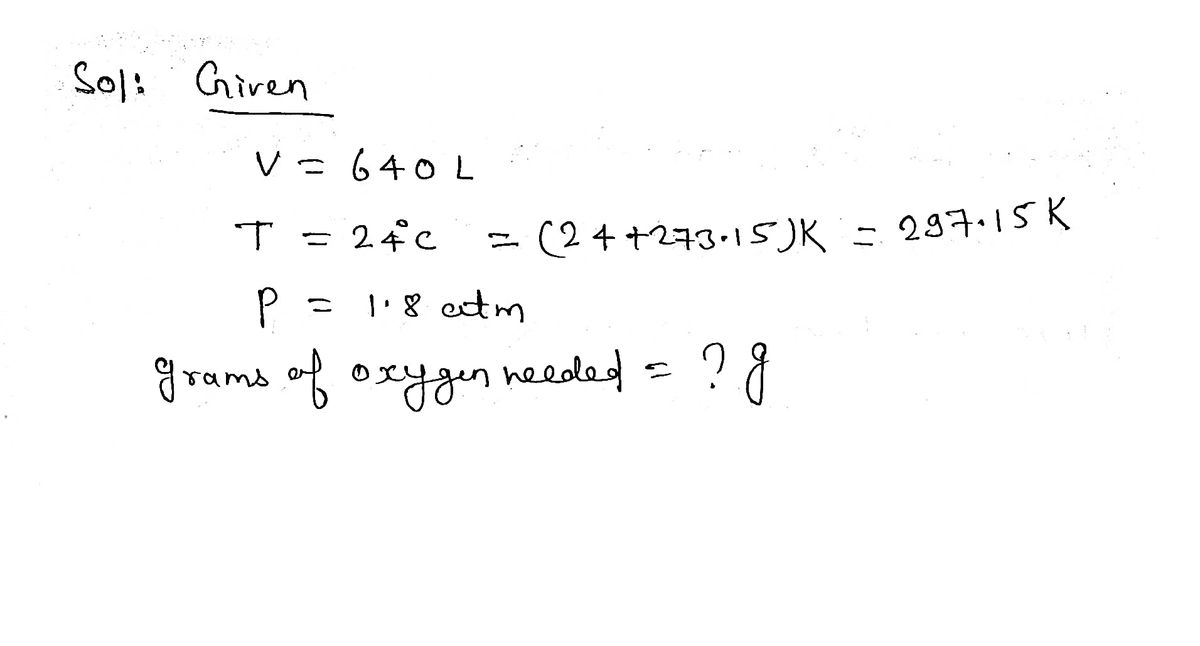 Sol: Given
V = 640 L
T = 24°C = (24+273.15)K = 297.15 K
P = 1.8 atm
grams of oxygen needed = ? g